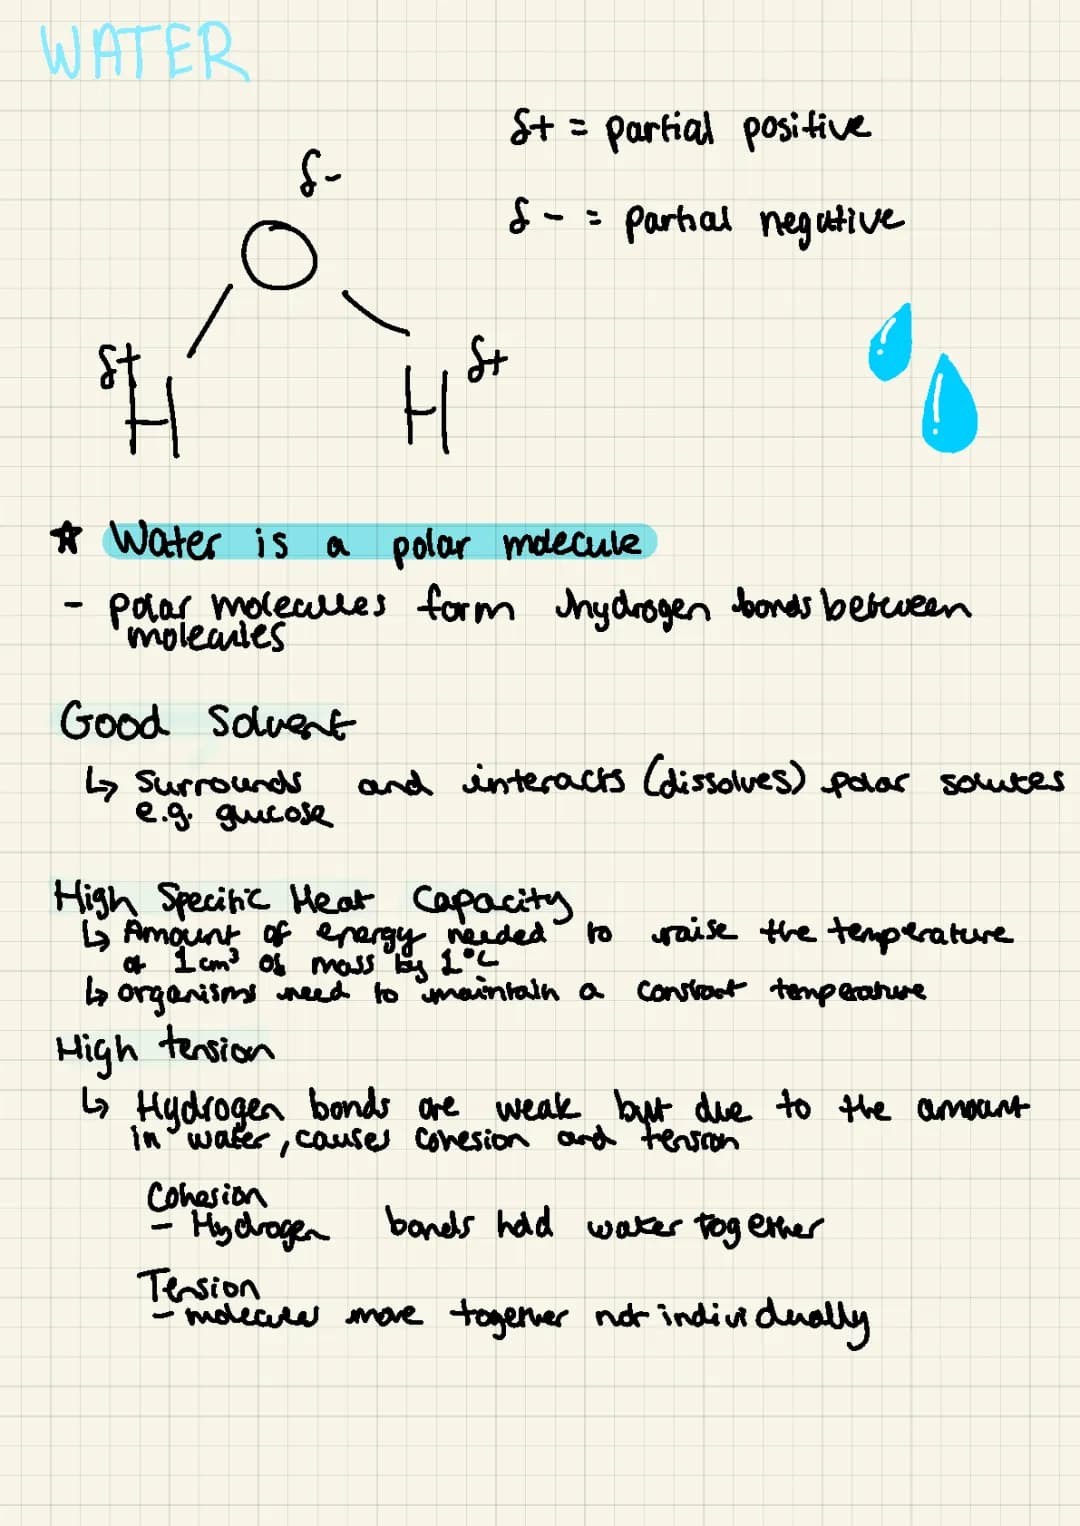 WATER
δ+ = partial positive
δ-
δ- = partial negative
O
δ+
δ+
H H
☆ Water is a polar molecule
- polar molecules form hydrogen bonds between
molecules
Good Solvent
↳ Surrounds and interacts (dissolves) polar solutes
e.g. glucose
High Specific Heat Capacity
↳ Amount of energy needed to raise the temperature
of 1cm³ of mass by 1°C
↳ organisms need to maintain a constant temperature
High tension
↳ Hydrogen bonds are weak but due to the amount
in water, causes cohesion and tension
Cohesion
- Hydrogen bonds hold water together
Tension
- molecules move together not individually